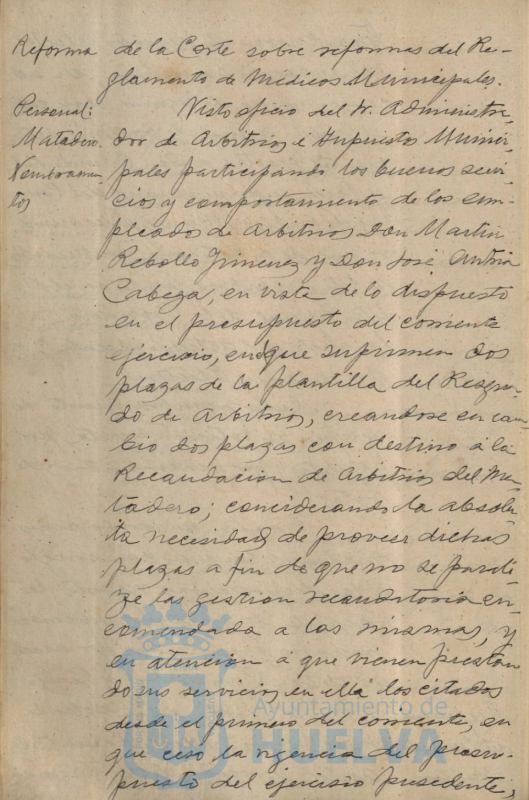 Reforma de la Corte sobre reformas del Re-
glamento de Médicos Municipales.
Personal: Visto oficio del Sr. Administra-
Matadero. dor de Arbitrios é Impuestos Munici-
Nombramien pales participando los buenos servi-
tos cios y comportamiento de los em-
pleados de Arbitrios Don Martin
Rebollo Jimenez y Don José Antria
Cabeza, en vista de lo dispuesto
en el presupuesto del corriente
ejercicio, en que suprimen dos
plazas de la plantilla del Resguar-
do de Arbitrios, creandose en cam-
bio dos plazas con destino á la
Recaudacion de Arbitrios del Ma-
tadero; considerando la absolu-
ta necesidad de proveer dichas
plazas a fin de que no se parali-
ze las gestion recaudatoria en-
comendada a las mismas, y
en atencion á que vienen prestan
do sus servicios en ella los citados
desde el primero del corriente, en
que ceso la vigencia del presu-
puesto del ejercicio presidente,
Ayuntamiento de
HUELVA